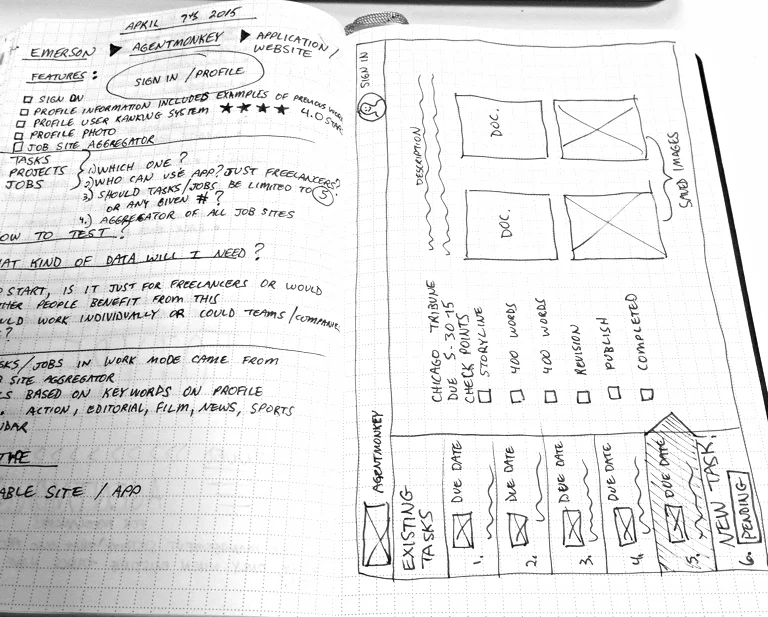 APRIL 7th 2015
EMERSON ▶ AGENTMONKEY ▶ APPLICATION/
WEBSITE
FEATURES:
SIGN IN / PROFILE
□ SIGN ON
□ PROFILE INFORMATION INCLUDED EXAMPLES OF PREVIOUS WORK
□ PROFILE USER RANKING SYSTEM ★ ★ ★ ★ 4.0 STARS
□ PROFILE PHOTO
□ JOB SITE AGGREGATOR
TASKS
PROJECTS
JOBS
1.) WHICH ONE?
2.) WHO CAN USE APP? JUST FREELANCERS?
3.) SHOULD TASKS/JOBS BE LIMITED TO 5
OR ANY GIVEN #?
4.) AGGREGATOR OF ALL JOB SITES
OW TO TEST?
AT KIND OF DATA WILL I NEED?
START, IS IT JUST FOR FREELANCERS OR WOULD
HER PEOPLE BENEFIT FROM THIS
ULD WORK INDIVIDUALLY OR COULD TEAMS/COMPANIE
?
SKS/JOBS IN WORK MODE CAME FROM
SITE AGGREGATOR
S BASED ON KEYWORDS ON PROFILE
ACTION, EDITORIAL, FILM, NEWS, SPORTS
NDAR
TYPE
ABLE SITE / APP
AGENTMONKEY
SIGN IN
EXISTING
TASKS
1. DUE DATE
2. DUE DATE
3. DUE DATE
4. DUE DATE
5. DUE DATE
NEW TASK!
6. PENDING
CHICAGO TRIBUNE
DUE 5-30-15
CHECK POINTS
□ STORYLINE
□ 400 WORDS
□ 400 WORDS
□ REVISION
□ PUBLISH
□ COMPLETED
DESCRIPTION
DOC.
DOC.
SAVED IMAGES